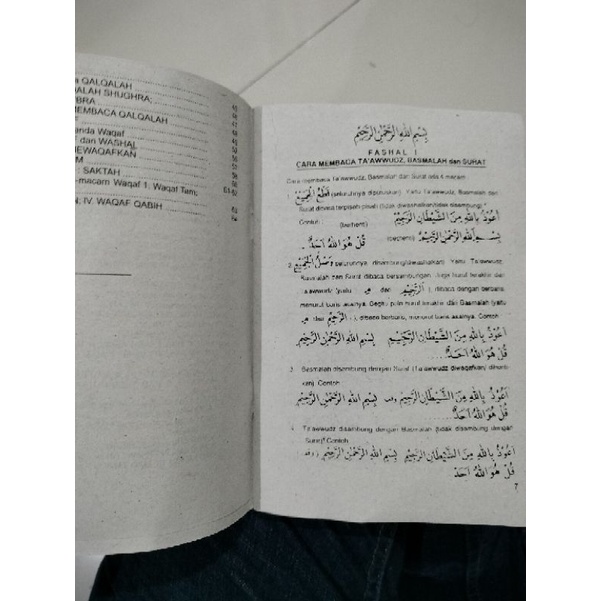 QALQALAH
ALAH SHUGHRA;
BRA
MEMBACA QALQALAH
anda Waqaf
dan WASHAL
DEWAQAFKAN
: SAKTAH
-macam Waqaf 1. Waqaf Tam;
N; IV. WAQAF QABIH
بِسْمِ اللهِ الرَّحْمٰنِ الرَّحِيْمِ
FASHAL I
CARA MEMBACA TA'AWWUDZ, BASMALAH dan SURAT
Cara membaca Ta'awwudz, Basmalah dan Surat ada 4 macam
قَطْعُ الْجَمِيْعِ (seluruhnya diputuskan) Yaitu Ta'awwudz, Basmalah dan
Surat dibaca terpisah
Contoh: (berhenti) أَعُوْذُ بِاللهِ مِنَ الشَّيْطَانِ الرَّجِيْمِ
بِسْمِ اللهِ الرَّحْمٰنِ الرَّحِيْمِ (berhenti) قُلْ هُوَ اللهُ أَحَدٌ
2. وَصْلُ الْجَمِيْعِ (seluruhnya disambung/diwashalkan) Yaitu Ta'awwudz
Basmalah dan Surat dibaca bersambungan
Ta'awwudz (yaitu dan الرَّجِيْمِ), dibaca dengan berbaris,
menurut baris asalnya. Begitu pula huruf terakhir dari Basmalah (yaitu
dan الرَّحِيْمِ), dibaca berbaris, menurut baris asalnya. Contoh
أَعُوْذُ بِاللهِ مِنَ الشَّيْطَانِ الرَّجِيْمِ بِسْمِ اللهِ الرَّحْمٰنِ الرَّحِيْمِ
قُلْ هُوَ اللهُ أَحَدٌ
3. Basmalah disambung dengan Surat (Ta'awwudz diwaqafkan)
Contoh
أَعُوْذُ بِاللهِ مِنَ الشَّيْطَانِ الرَّجِيْمِ وقف بِسْمِ اللهِ الرَّحْمٰنِ الرَّحِيْمِ
قُلْ هُوَ اللهُ أَحَدٌ
4. Ta'awwudz disambung dengan Basmalah (tidak disambung dengan
Surat) Contoh
أَعُوْذُ بِاللهِ مِنَ الشَّيْطَانِ الرَّجِيْمِ بِسْمِ اللهِ الرَّحْمٰنِ الرَّحِيْمِ (وقف
قُلْ هُوَ اللهُ أَحَدٌ
7